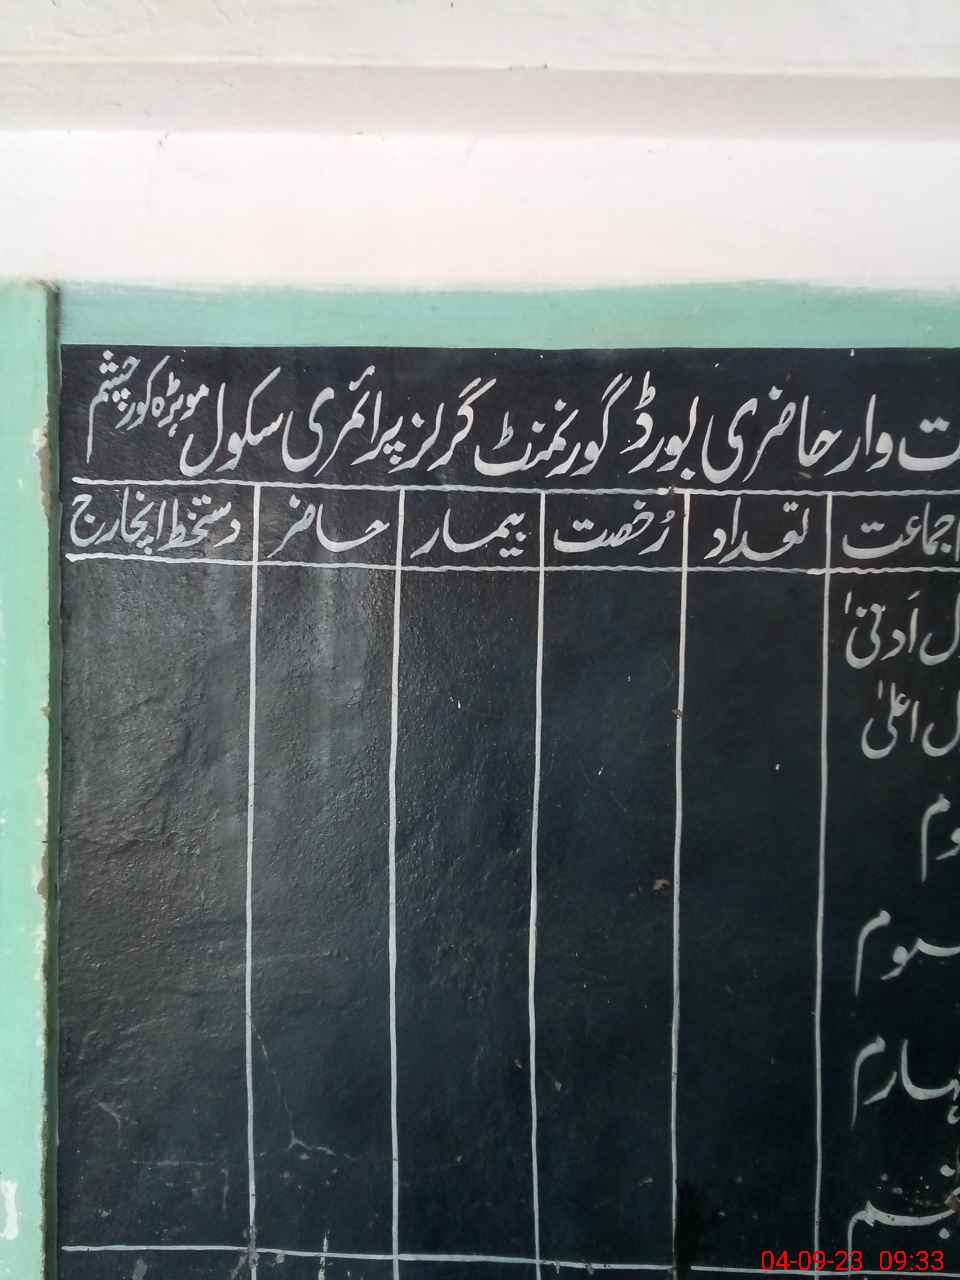 ت وار حاضری بورڈ گورنمنٹ گرلز پرائمری سکول موہڑہ کور چشم
جماعت تعداد رُخصت بیمار حاضر دستخط انچارج
ل اَدنیٰ
ل اعلیٰ
وم
سوم
ہارم
نجم
04-09-23 09:33